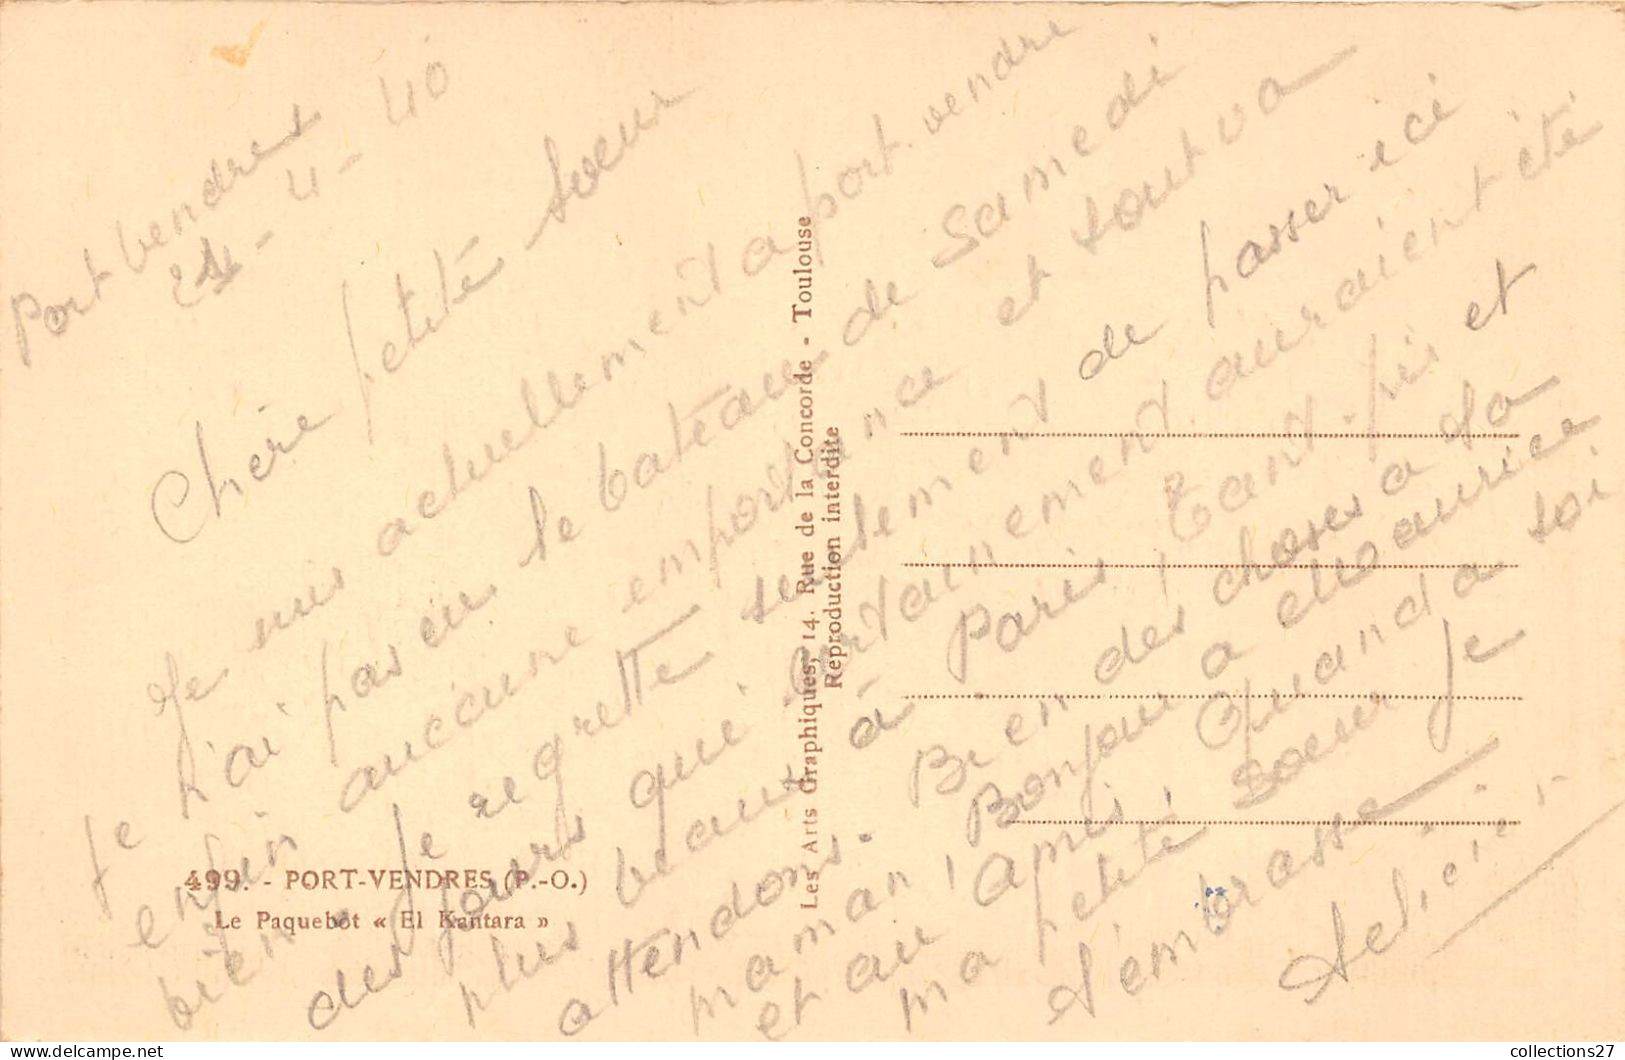 Port Vendres
24-4-40
Chère petite soeur
Je suis actuellement a port. vendre
je n'ai pas eu le bateau de Samedi
enfin aucune emportence et tout va
bien. Je regrette seulement de passer ici
des jours qui certainement auraient été
plus beaux à Paris. Tant. pis et
attendons. Bien des choses a ta
maman, Bonjour a Maurice
et au amis. Quand a toi
ma petite soeur je
t'embrasse
499. - PORT-VENDRES (P.-O.)
Le Paquebot « El Kantara »
Les Arts Graphiques, 14. Rue de la Concorde - Toulouse
Reproduction interdite
collections27